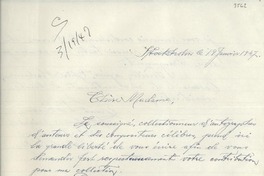 3/19/47
Stockholm le 18 Janvier 1947.
Chère Madame,
Le soussigné, collectionneur d'autographes
d'auteurs et des compositeurs célèbres, prend ici
la grande liberté de vous écrire afin de vous
demander fort respectueusement votre contribution
pour ma collection.